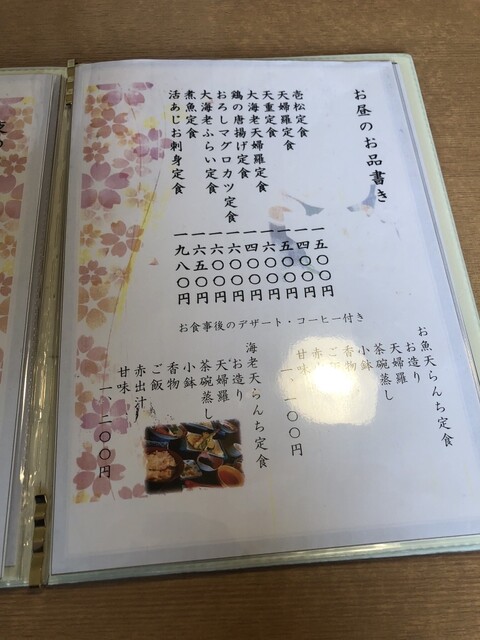 お昼のお品書き
壱松定食 一五〇〇円
天婦羅定食 一四〇〇円
天重定食 一五〇〇円
大海老天婦羅定食 一六〇〇円
鶏の唐揚げ定食 一四〇〇円
おろしマグロカツ定食 一六〇〇円
大海老ふらい定食 一六〇〇円
煮魚定食 一六五〇円
活あじお刺身定食 一九八〇円
お食事後のデザート・コーヒー付き
お魚天らんち定食
お造り
天婦羅
茶碗蒸し
小鉢
香物
ご飯
赤出汁
甘味
一、一〇〇円
海老天らんち定食
お造り
天婦羅
茶碗蒸し
小鉢
香物
ご飯
赤出汁
甘味
一、二〇〇円